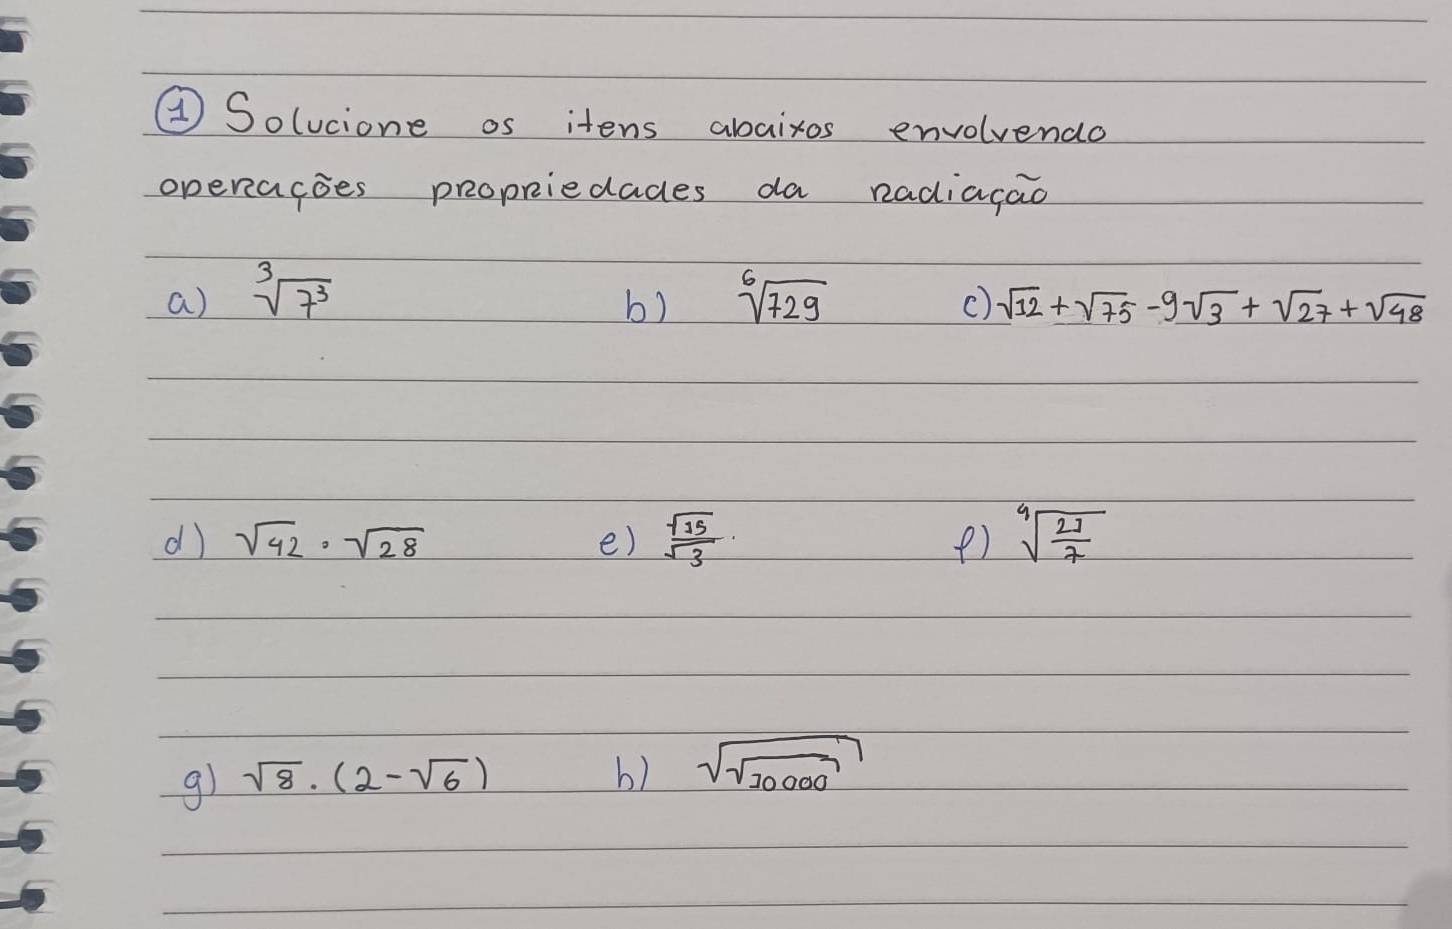 ① Solucione os itens abaixos envolvendo
operações propriedades da radiação
a) ∛7³ b) ⁶√729 c) √12 + √75 - 9√3 + √27 + √48
d) √42 · √28 e) √15/√3 f) ⁹√(21/7)
g) √8 . (2-√6) h) √√10000